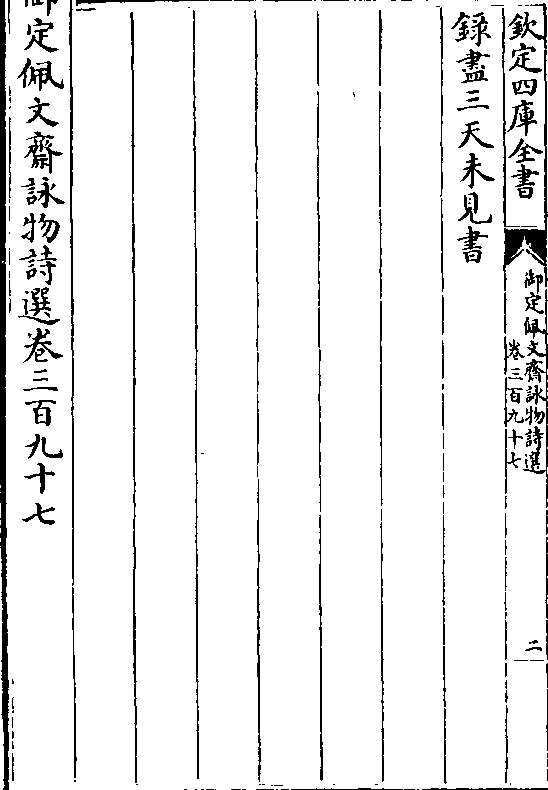 欽定四庫全書
御定佩文齋詠物詩選
卷三百九十七
二
錄盡三天未見書
御定佩文齋詠物詩選卷三百九十七